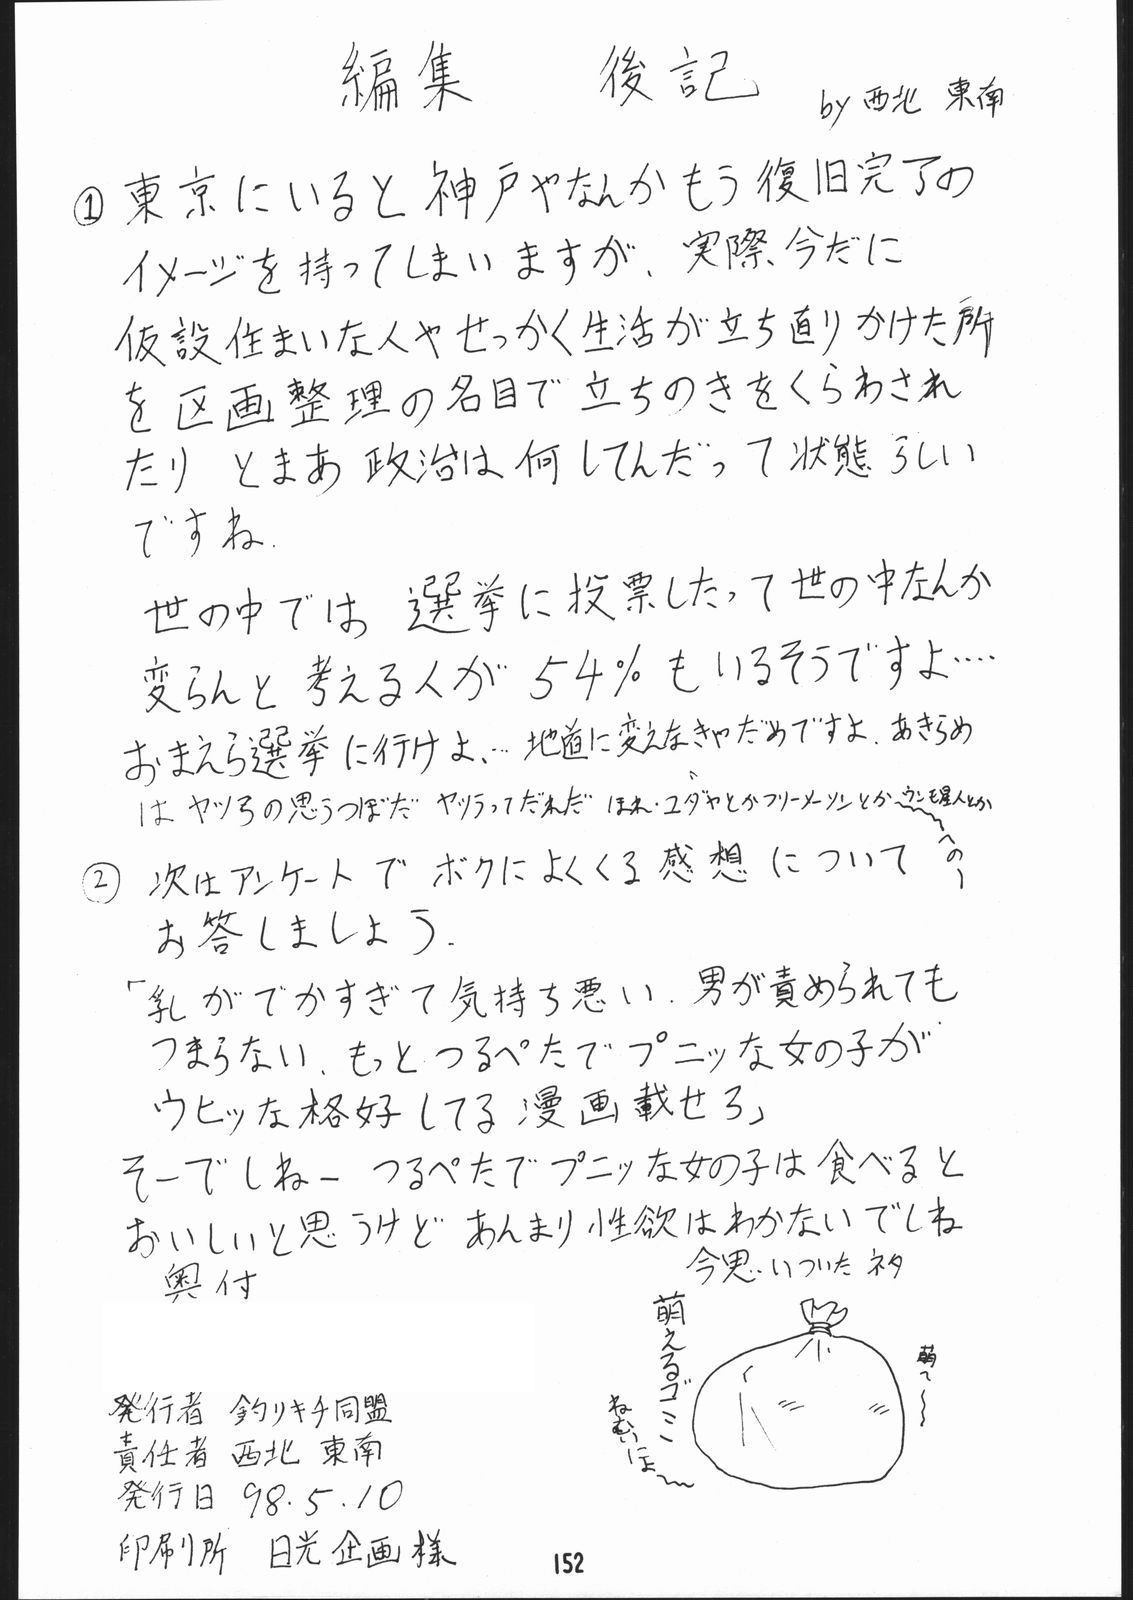 編集 後記
by 西北 東南
① 東京にいると神戸やなんかもう復旧完了の
イメージを持ってしまいますが、実際、今だに
仮設住まいな人やせっかく生活が立ち直りかけた所
を区画整理の名目で立ちのきをくらわされ
たり とまあ 政治は何してんだって状態らしい
ですね.
世の中では 選挙に投票したって世の中なんか
変らんと考える人が 54%もいるそうですよ‥‥
おまえら選挙に行けよ、… 地道に変えなきゃだめですよ. あきらめ
は ヤツラの思うつぼだ ヤツラってだれだ ほれ・ユダヤとかフリーメーソンとかウンモ星人とか
へのー
② 次はアンケートでボクによくくる感想について
お答しましょう.
「乳がでかすぎて気持ち悪い. 男が責められても
つまらない、もっとつるぺたでプニッな女の子が
ウヒッな格好してる漫画載せろ」
そーでしねー つるぺたでプニッな女の子は食べると
おいしいと思うけど あんまり性欲はわかないでしね
今思いついたネタ
奥付
萌えるゴミ
ねむいにょ〜
萌て〜
発行者 釣りキチ同盟
責任者 西北 東南
発行日 98.5.10
印刷所 日光企画様
152